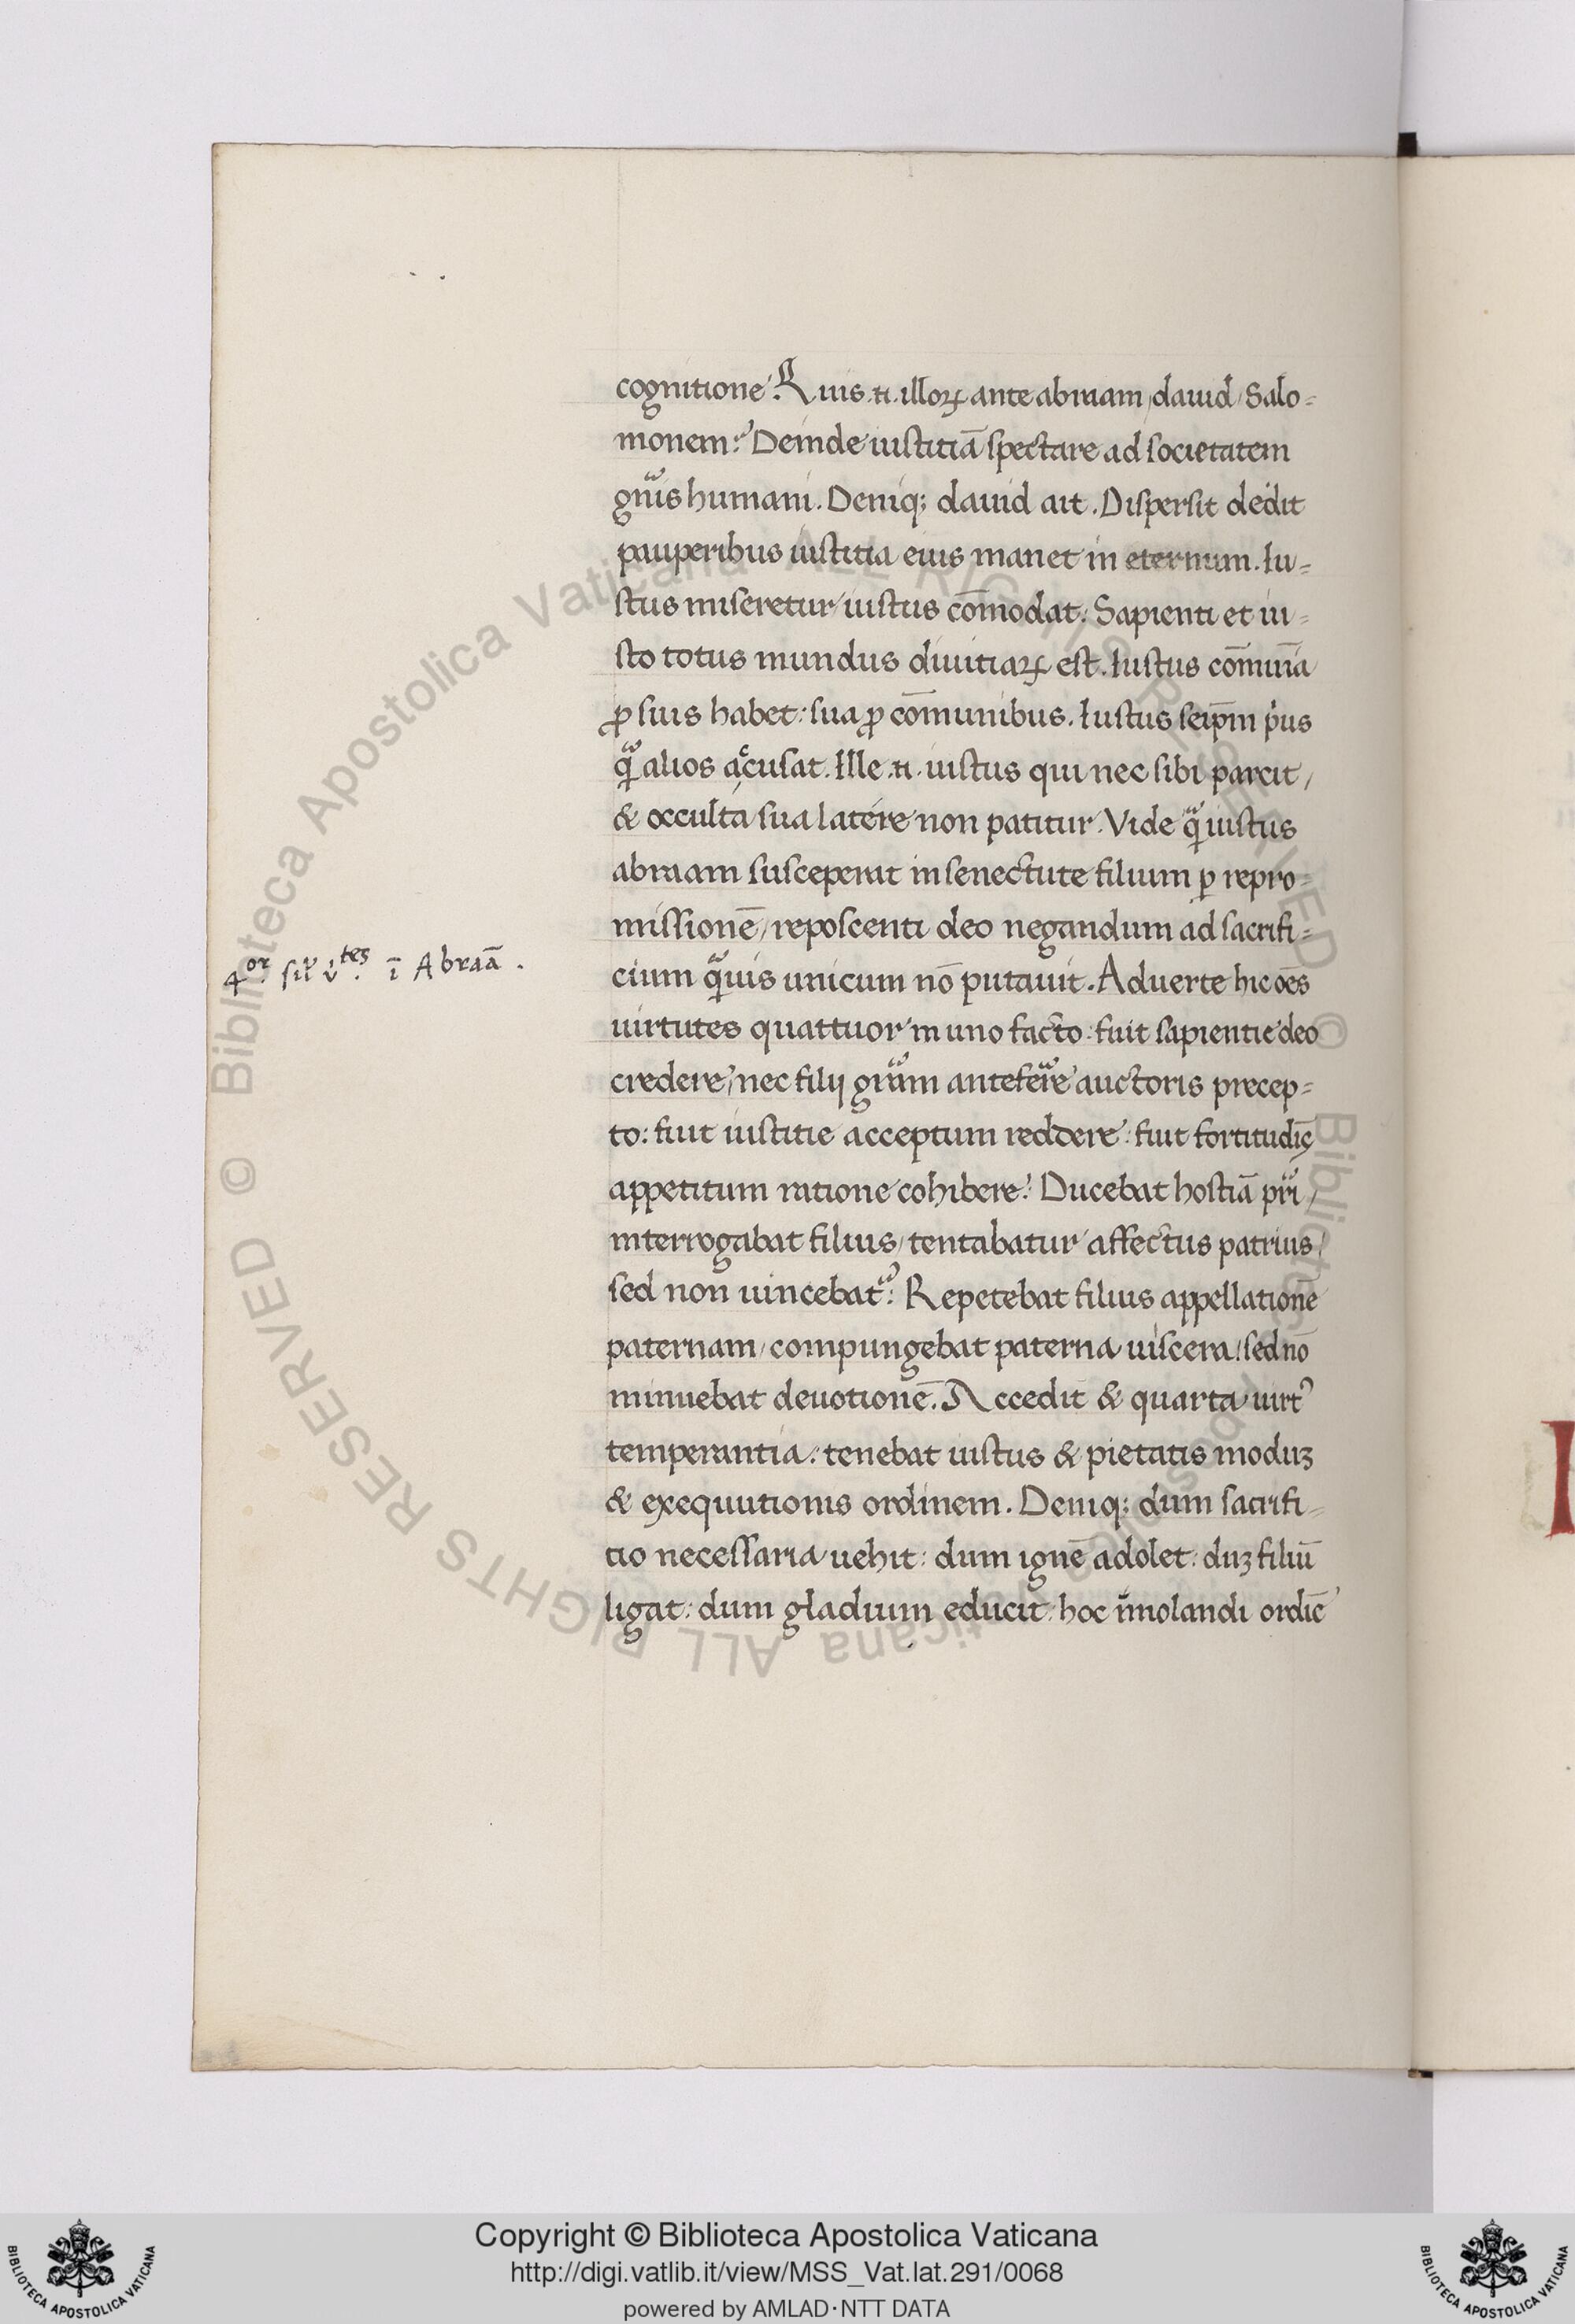 cognitione? Quis .n. illoꝝ ante abraam / dauid / Salo-
monem? Deinde iustitiā spectare ad societatem
gn̄is humani. Deniq; dauid ait. Dispersit dedit
pauperibus iustitia eius manet in eternum. Iu-
stus miseretur iustus cōmodat: Sapienti et iu-
sto totus mundus diuitiaꝝ est. Iustus cōmunia
ꝓ suis habet: sua ꝓ cōmunibus. Iustus seip̄m p̓us
q̃ alios accusat. Ille .n. iustus qui nec sibi parcit /
& occulta sua latere non patitur. Vide q̃ iustus
abraam susceperat in senectute filium ꝑ repro-
missionē / reposcenti deo negandum ad sacrifi-
4or. sil̓ v̓tes. ī Abraā.
cium q̃uis unicum nō putauit. Aduerte hic oēs
uirtutes quattuor in uno facto: fuit sapientie deo
credere / nec filij gr̃am anteferr̃e auctoris precep-
to: fuit iustitie acceptum reddere: fuit fortitudīs
appetitum ratione cohibere: Ducebat hostiā pr̃i /
interrogabat filius / tentabatur affectus patrius /
sed non uincebat᷑: Repetebat filius appellationē
paternam / compungebat paterna uiscera: sed nō
minuebat deuotionē. Accedit & quarta uirtꝰ
temperantia: tenebat iustus & pietatis moduꝫ
& exequutionis ordinem. Deniq; dum sacrifi-
tio necessaria uehit: dum ignē adolet: duꝫ filiū
ligat: dum gladium educit: hoc īmolandi ordīe
Copyright © Biblioteca Apostolica Vaticana
http://digi.vatlib.it/view/MSS_Vat.lat.291/0068
powered by AMLAD·NTT DATA
BIBLIOTECA APOSTOLICA VATICANA
BIBLIOTECA APOSTOLICA VATICANA
© Biblioteca Apostolica Vaticana ALL RIGHTS RESERVED © Biblioteca Apostolica Vaticana ALL RIGHTS RESERVED